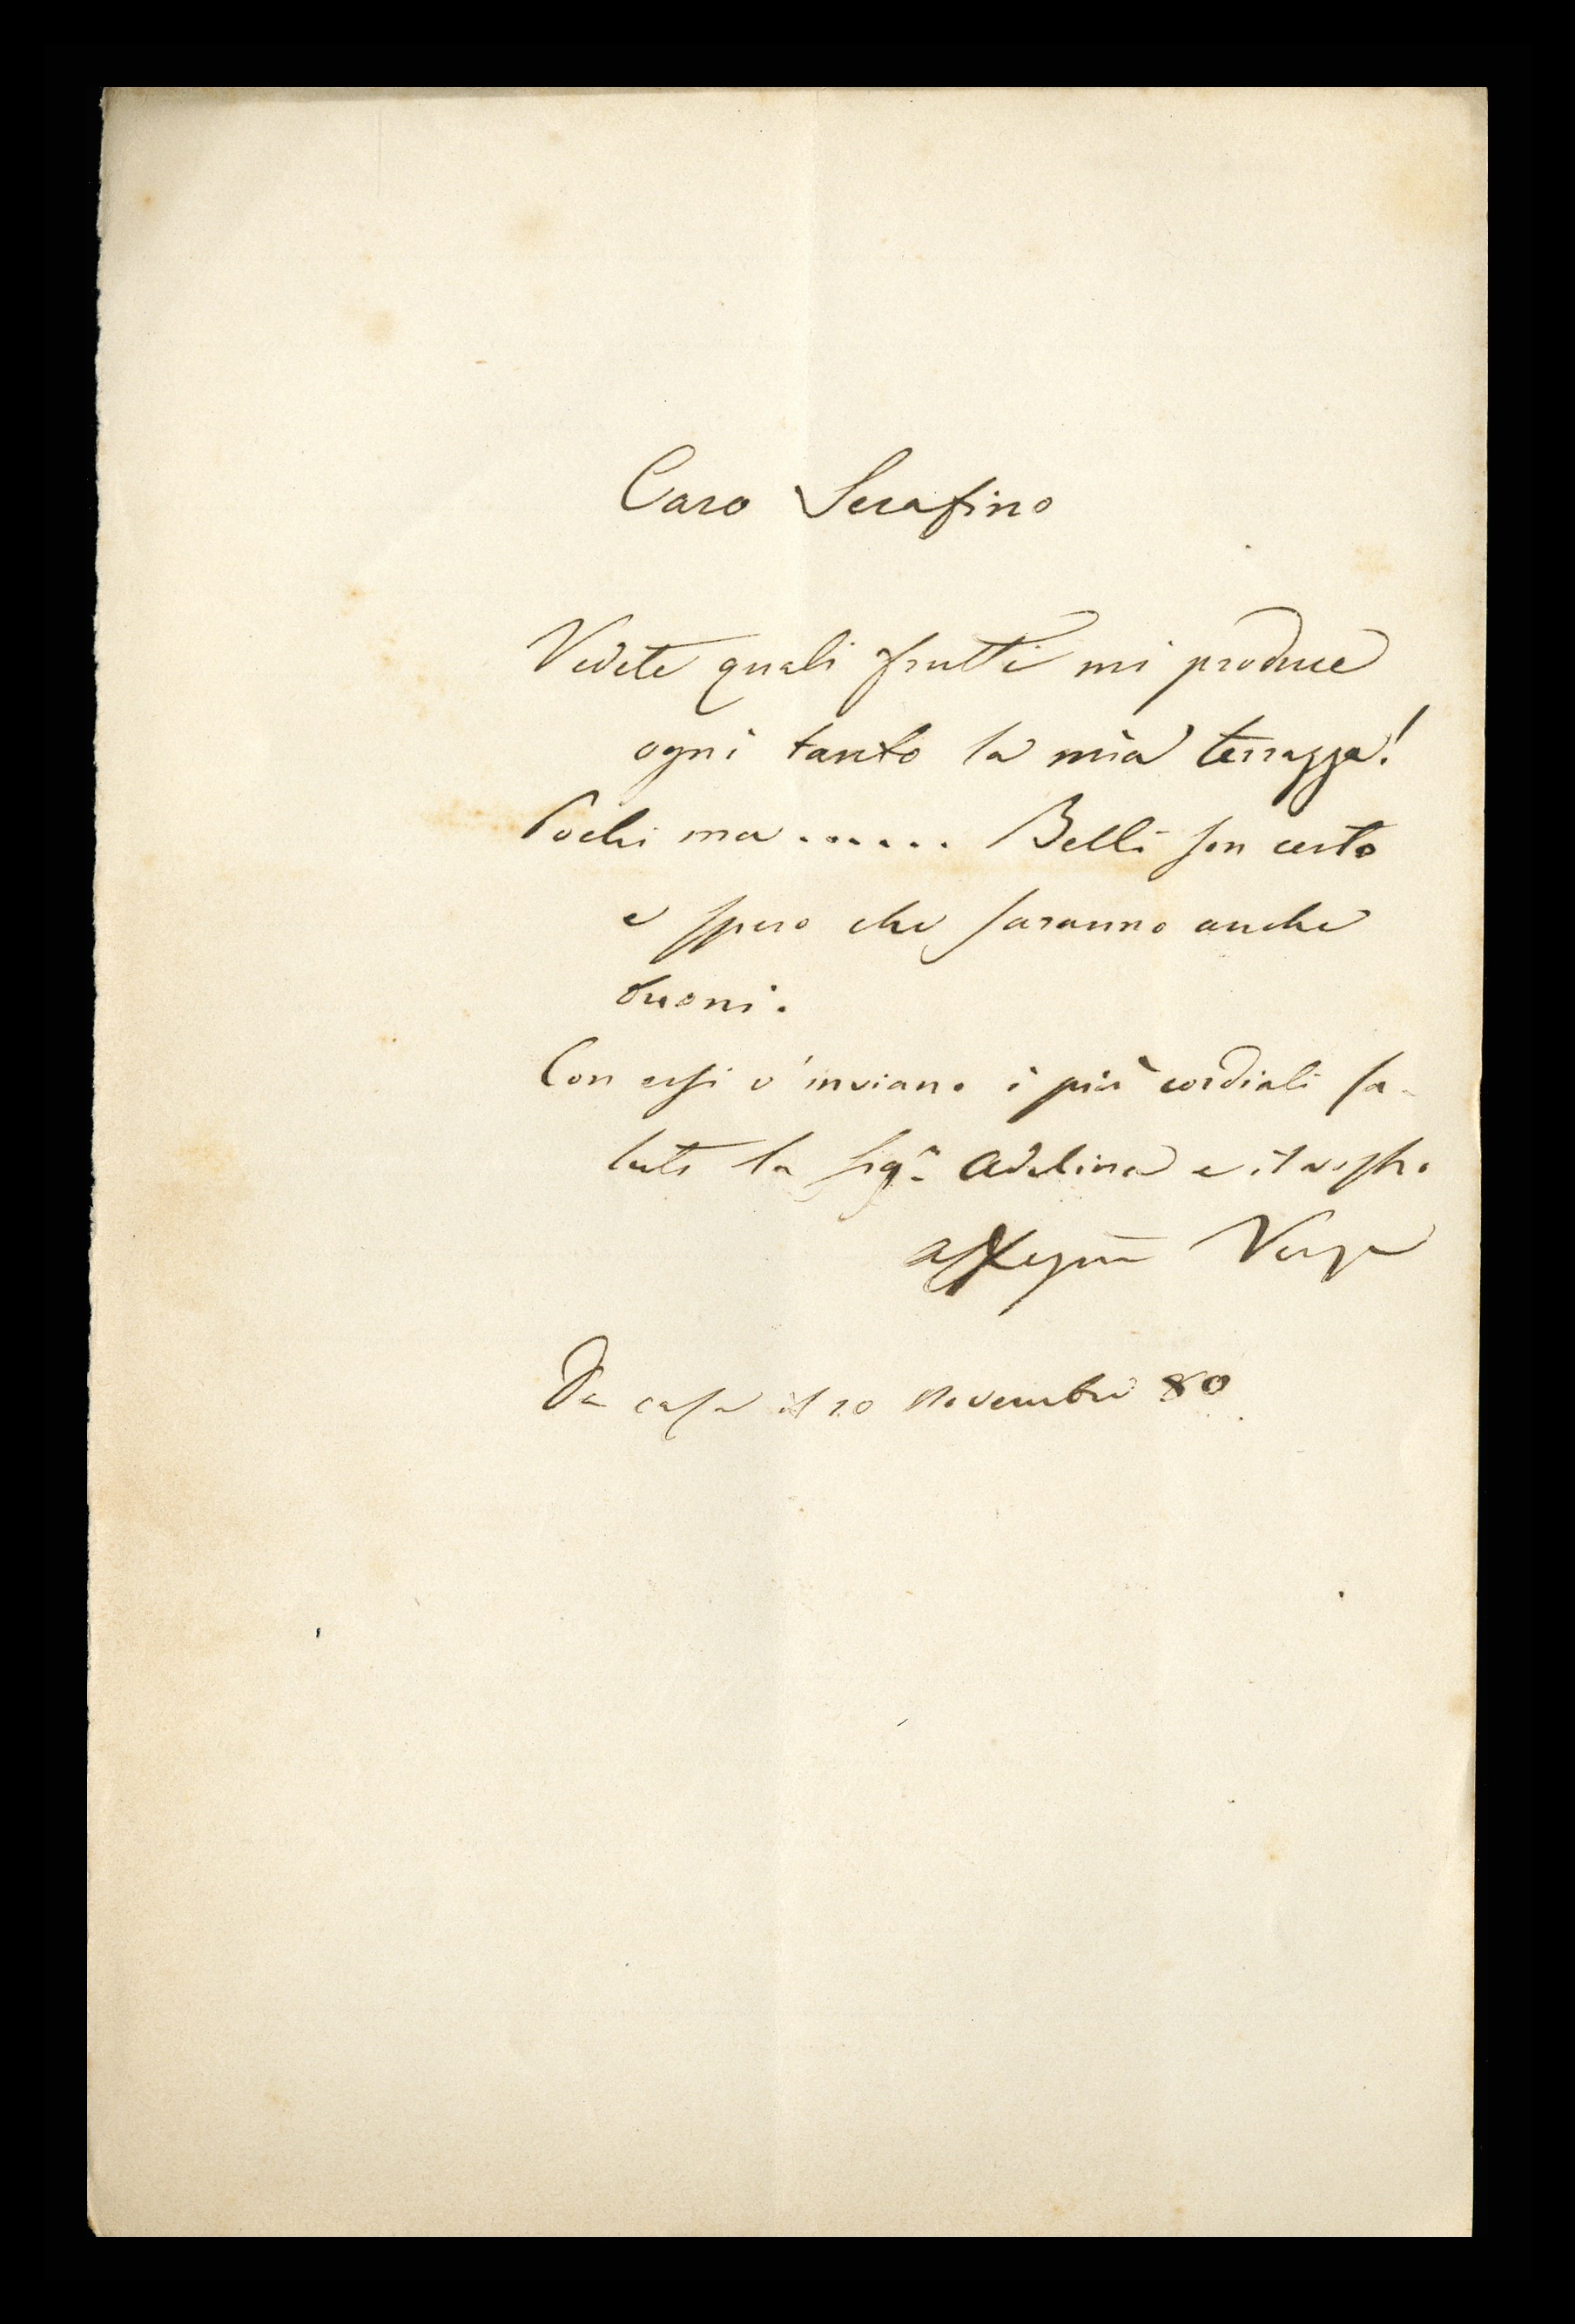 Caro Serafino
Vedete quali frutti mi produce
ogni tanto la mia terrazza!
Pochi ma ...... Belli son certo
e spero che saranno anche
buoni.
Con essi v'inviano i più cordiali sa-
luti la Sigª Adelina e il vostro
Verga
Da casa il 10 Novembre 80